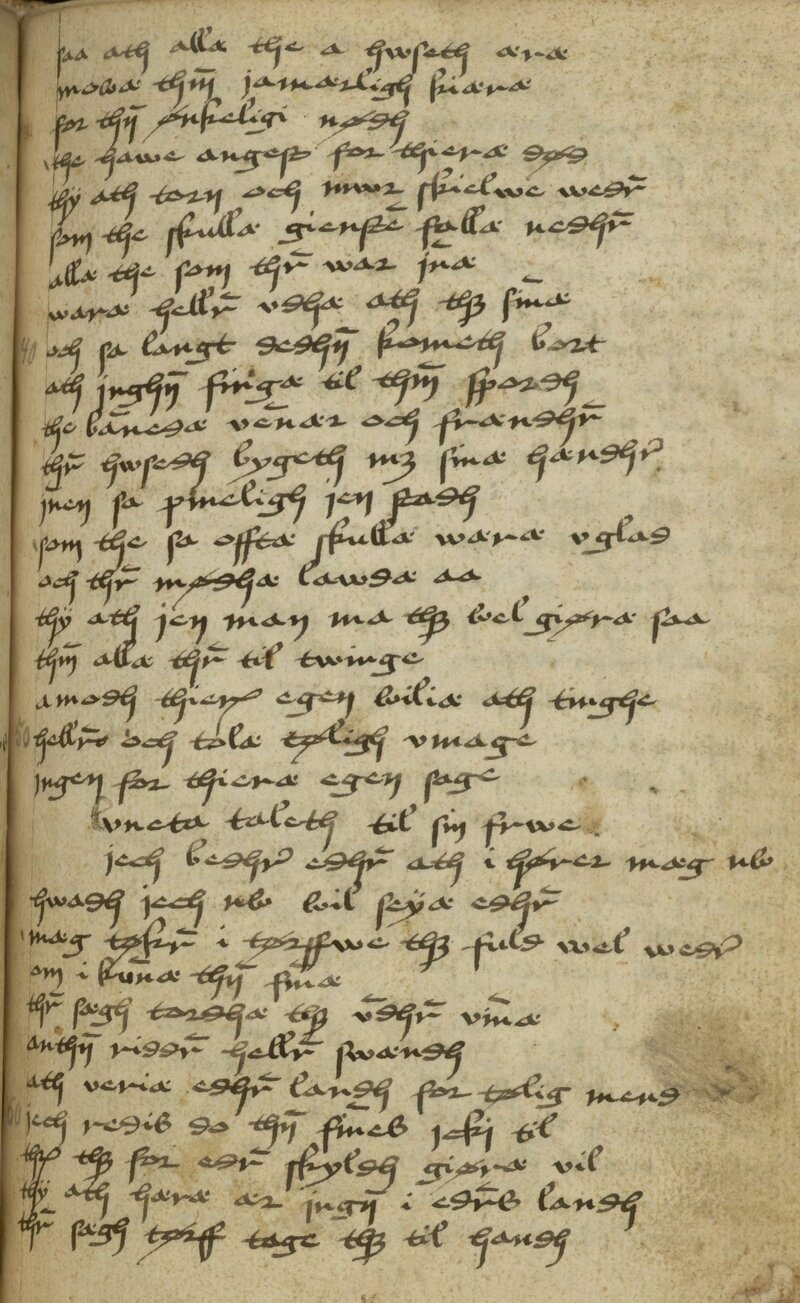 saa ath allæ the a hwseth æræ
mowæ thm̄ jamærligh kiæræ
for thn̄ ønkeligi nødh
the hawe angest for thieræ død
thy ath torn och mwr skielwe wedr̄
som the skullæ gienstē fallæ nedhr̄
allæ the som thr̄ war jn̄æ
waræ hellr̄ vdhæ ath thꝫ sin̄æ
40 och sa langt dedhn̄ kometh bort
ath jnghn̄ fingæ til thm̄ spordh
the ban̄edæ ven̄ær och frændhr̄
thr̄ hwsedh bygeth mꝫ sinæ hændhr̄
jnen sa pineligh jen stadh
som the sa offtæ skullæ wæræ vglad
och thr̄ mødhæ lawdæ aa
thy ath jen man ma thꝫ wel giøræ saa
thm̄ allæ thr̄ til twinge
amodh thieræ egen wiliæ ath tinghe
50 hellr̄ och tolæ tøligh vmage
jngen for thieræ egen sage
lvneta taleth til sin frwe
jech bedhr̄ edhr̄ ath i hører mæg nw
hwadh jech nw wil seyæ edhr̄
mæg tøkr̄ i tørffwe thꝫ fuld wel wedr̄
om i kun̄æ thn̄ fin̄æ
thr̄ sægh tordhæ thꝫ vn̄dhr̄ vin̄æ
anthn̄ riddr̄ hellr̄ swændh
ath veriæ edhr̄ landh for tølig mend
60 jech redis do thn̄ fin̄es jcki til
thr̄ thꝫ for edr̄ skyldh giøræ vil
thy ath hæræ ær jngn̄ i edr̄s landh
thr̄ sægh tørff tage thꝫ til handh